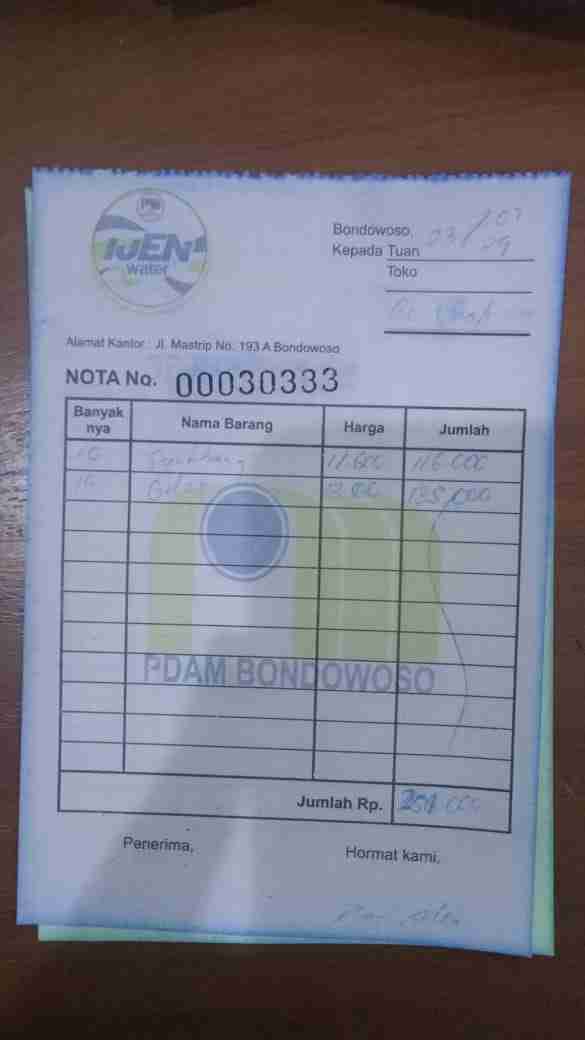 IJEN
water
Bondowoso,
Kepada Tuan
Toko
Alamat Kantor : Jl. Mastrip No. 193 A Bondowoso
NOTA No. 00030333
Banyak nya Nama Barang Harga Jumlah
10 11.600 116.000
10 Gelas 135.000
PDAM BONDOWOSO
Jumlah Rp. 251.000
Penerima, Hormat kami,